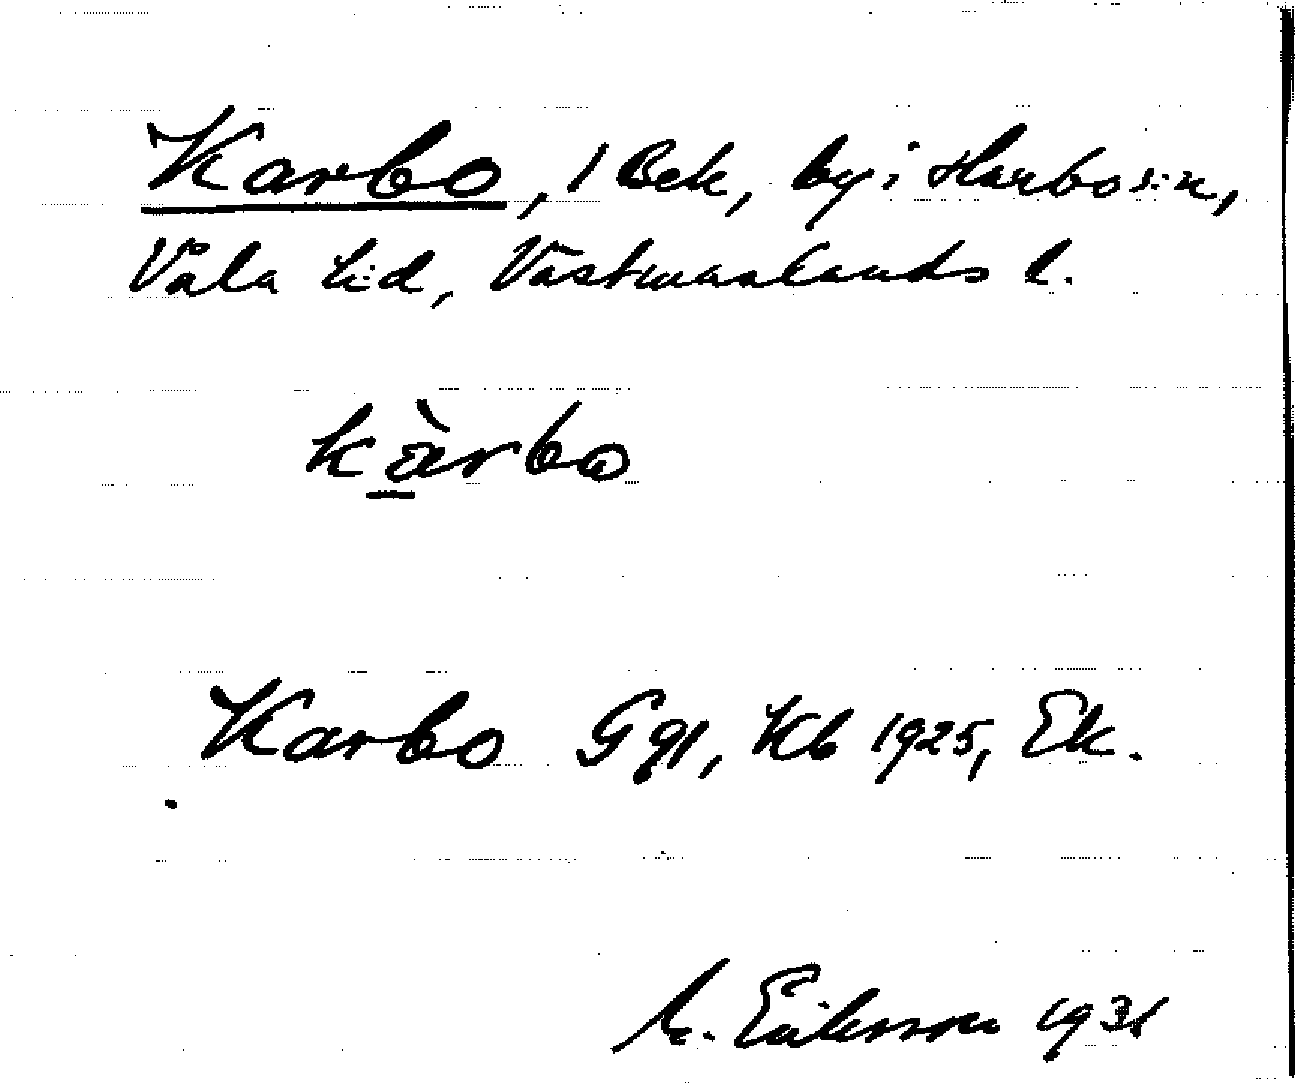 Karbo, 1 Bek, by i Harbo s:n,
Våla h:d, Västmanlands l.
kàrbo
Karbo Ggl, Kb 1925, Ek.
M. Eriksson 1931